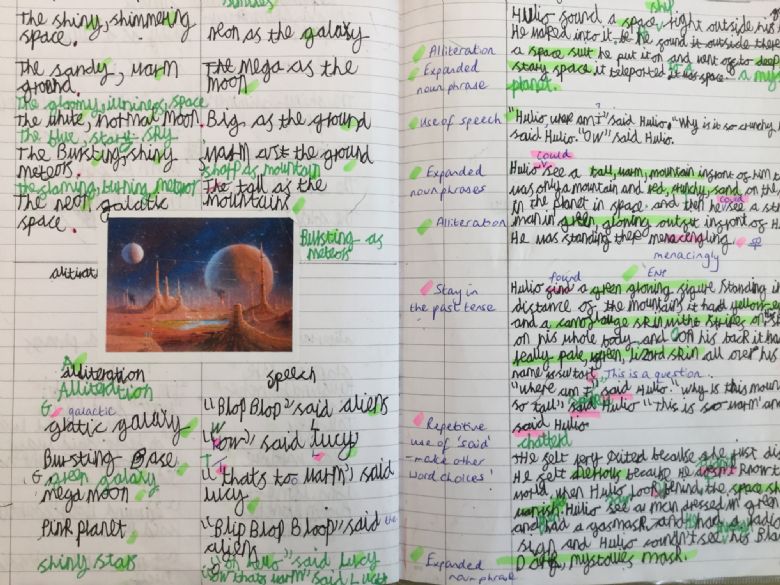 similes
The shiny, shimmering
space.
neon as the galaxy
The sandy, warm
ground.
The mega as the
moon
The gloomy, space
The white, normal moon.
Big as the ground
The blue, stary sky
The Bursting, shiny
meteors.
warm as the ground
sharp as mountain
The flaming, burning meteor
The tall as the
mountains
The neon galatic
space.
Bursting as
meteors
alliteration
Alliteration
galactic
glatic galaxy
Bursting Base
green galaxy
mega moon
Pink planet
shiny stars
speech
"Blop Blop" said aliens
"wow" said Lucy
"thats to warm" said
Lucy
"Blip Blop Bloop" said the
aliens
"oh hello" said Lucy
"oh thats warm" said Lucy
Alliteration
Expanded
noun phrase
Use of speech
Expanded
noun phrases
Alliteration
Stay in
the past tense
Repetitive
use of 'said'
- make other
word choices!
Expanded
noun phrase
ship
Hulio found a space right outside his
He walked into it. he found it outside
a space suit he put it on and went of to deep
stary space, it teleported to a space
planet.
"Hulio, where am I" said Hulio. "Why is is so crunchy
said Hulio. "OW" said Hulio.
could
Hulio see a tall, warm, mountain infront of him
was only a mountain and red, sandy, sand on the
in the planet in space. and then he could see a
man in green glowing outfit infront of
He was standing there menacingling sp
menacingly
found
ENP
Hulio find a green glowing figure standing in
distance of the mountains it had
and a camoflauge skin with stripes on
on his whole body and on his back it had
really pale, green, lizard skin all over his
name is
This is a question.
"where am I" said Hulio. "why is this
so tall" said Hulio "This is so warm" and
said Hulio
chatted
He felt very exited because he just
He felt because he doesn't know
world, when Hulio look behind the space ship
vanish. Hulio see a man dressed in green
and had a gasmask and
sign and Hulio couldn't see his
Dark, mask.